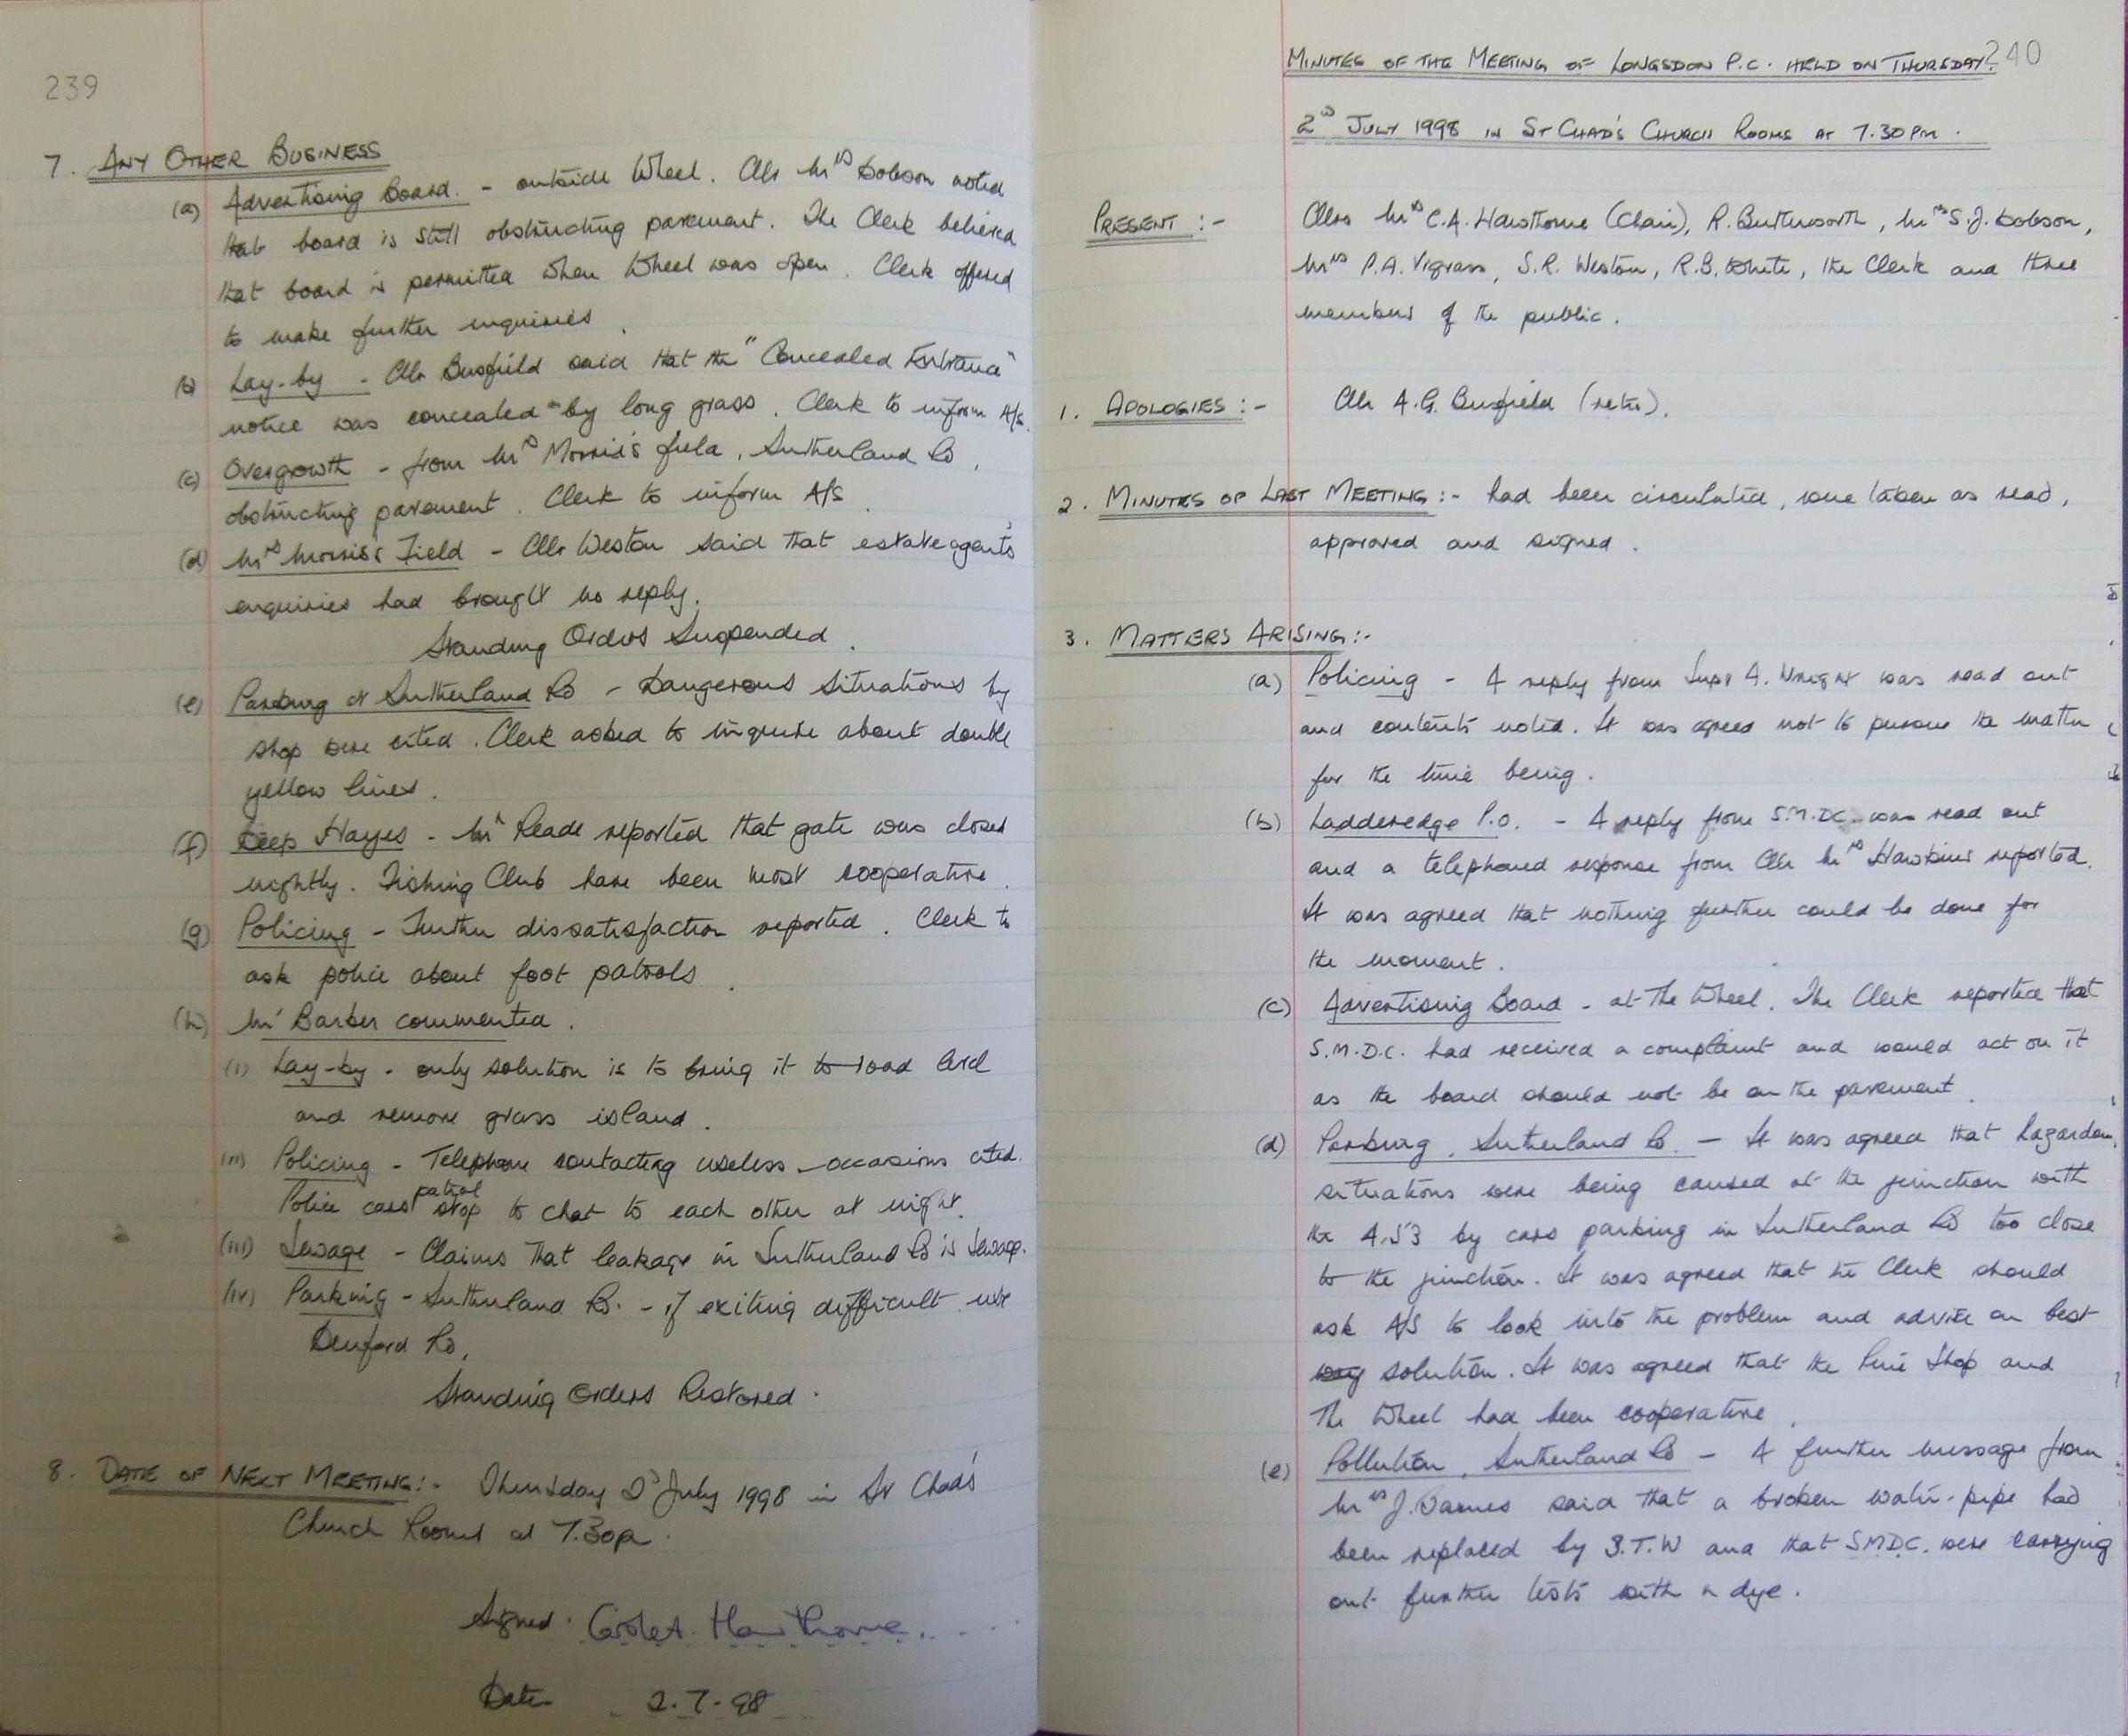 239
7. ANY OTHER BUSINESS
(a) Advertising Board. - outside Wheel. Cllr Mrs Dobson noted
that board is still obstructing pavement. The Clerk believed
that board is permitted when Wheel was open. Clerk offered
to make further enquiries.
(b) Lay-by - Cllr Busfield said that the "Concealed Entrance"
notice was concealed by long grass. Clerk to inform A/S.
(c) Overgrowth - from Mrs Morris's field, Sutherland Rd,
obstructing pavement. Clerk to inform A/S.
(d) Mrs Morris's Field - Cllr Weston said that estate agents'
enquiries had brought no reply.
Standing Orders Suspended.
(e) Parking at Sutherland Rd - Dangerous situations by
shop were cited. Clerk asked to inquire about double
yellow lines.
(f) Deep Hayes - Mr Reade reported that gate was closed
nightly. Fishing Club have been most cooperative.
(g) Policing - Further dissatisfaction reported. Clerk to
ask police about foot patrols.
(h) Mr Barber commented.
(i) Lay-by - only solution is to bring it to road level
and remove grass island.
(ii) Policing - Telephone contacting useless - occasions cited.
Police cars patrol stop to chat to each other at night.
(iii) Sewage - Claims that leakage in Sutherland Rd is sewage.
(iv) Parking - Sutherland Rd. - if exiting difficult use
Denford Rd.
Standing Orders Restored.
8. DATE OF NEXT MEETING:- Thursday 2nd July 1998 in St Chad's
Church Rooms at 7.30pm.
Signed. Hawthorne
Date 2.7.98
240
MINUTES OF THE MEETING OF LONGSDON P.C. HELD ON THURSDAY
2nd JULY 1998 IN ST CHAD'S CHURCH ROOMS AT 7.30PM.
PRESENT:- Cllrs Mrs C.A. Hawthorne (Chair), R. Butterworth, Mrs S.J. Dobson,
Mrs P.A. Vigrass, S.R. Weston, R.B. White, the Clerk and three
members of the public.
1. APOLOGIES:- Cllr A.G. Busfield (retro).
2. MINUTES OF LAST MEETING:- had been circulated, were taken as read,
approved and signed.
3. MATTERS ARISING:-
(a) Policing - A reply from Supt A. Wright was read out
and contents noted. It was agreed not to pursue the matter
for the time being.
(b) Ladderedge P.O. - A reply from S.M.D.C. was read out
and a telephoned response from Cllr Mrs Hawkins reported.
It was agreed that nothing further could be done for
the moment.
(c) Advertising Board - at the Wheel. The Clerk reported that
S.M.D.C. had received a complaint and would act on it
as the board should not be on the pavement.
(d) Parking, Sutherland Rd. - It was agreed that hazardous
situations were being caused at the junction with
the A.53 by cars parking in Sutherland Rd too close
to the junction. It was agreed that the Clerk should
ask A/S to look into the problem and advise on best
way solution. It was agreed that the Pine Shop and
The Wheel had been cooperative.
(e) Pollution, Sutherland Rd - A further message from
Mrs J. Barnes said that a broken water-pipe had
been replaced by S.T.W and that S.M.D.C. were carrying
out further tests with a dye.